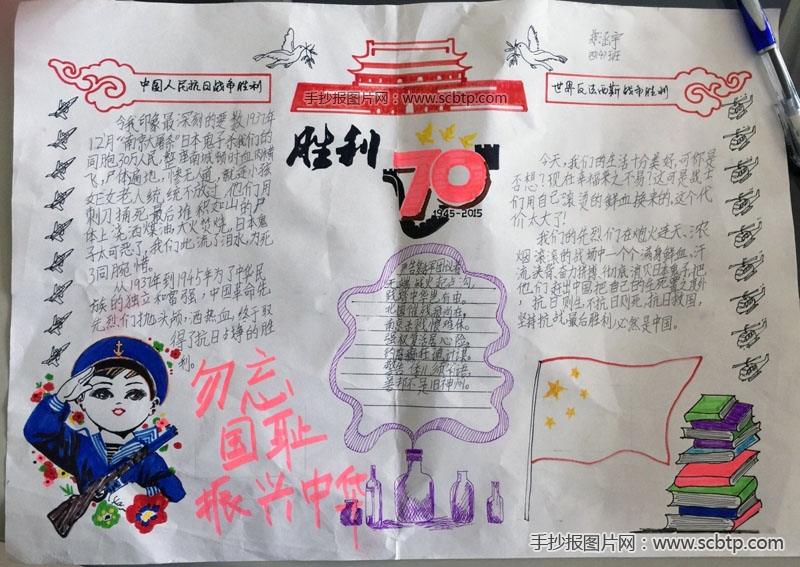 蔡孟宇
四(4)班
中国人民抗日战争胜利
手抄报图片网:www.scbtp.com
世界反法西斯战争胜利
令我印象最深刻的要数1937年
12月“南京大屠杀”日本鬼子杀我们的
同胞30万人民,整座南城顿时血肉横
飞,尸体遍地,惨无人道,就连小孩
妇女老人统统不放过,他们用
刺刀捅死,最后堆积如山的尸
体上浇洒煤油,大火焚烧,日本鬼
子太可恶了,我们此流了泪水,为死
了同胞惋惜。
从1937年到1945年为了中华民
族的独立和富强,中国革命先
先烈们抛头颅,洒热血,终于取
得了抗日战争的胜
利。
胜利
70
1945-2015
今天,我们的生活十分美好,可你是
否想?现在幸福来之不易?这可是战士
们用自己滚烫的鲜血换来的,这个代
价太大了!
我们的先烈们在炮火连天、浓
烟滚滚的战场中一个个满身鲜血、汗
流浃背,奋力拼搏,彻底消灭日本鬼子,把
他们赶出中国,把自己的生死置之度外
,抗日则生,不抗日则死,抗日救国,
坚持抗战,最后胜利必然是中国。
无端战火起卢沟,
南京
勿忘
国耻
振兴中华
手抄报图片网:www.scbtp.com